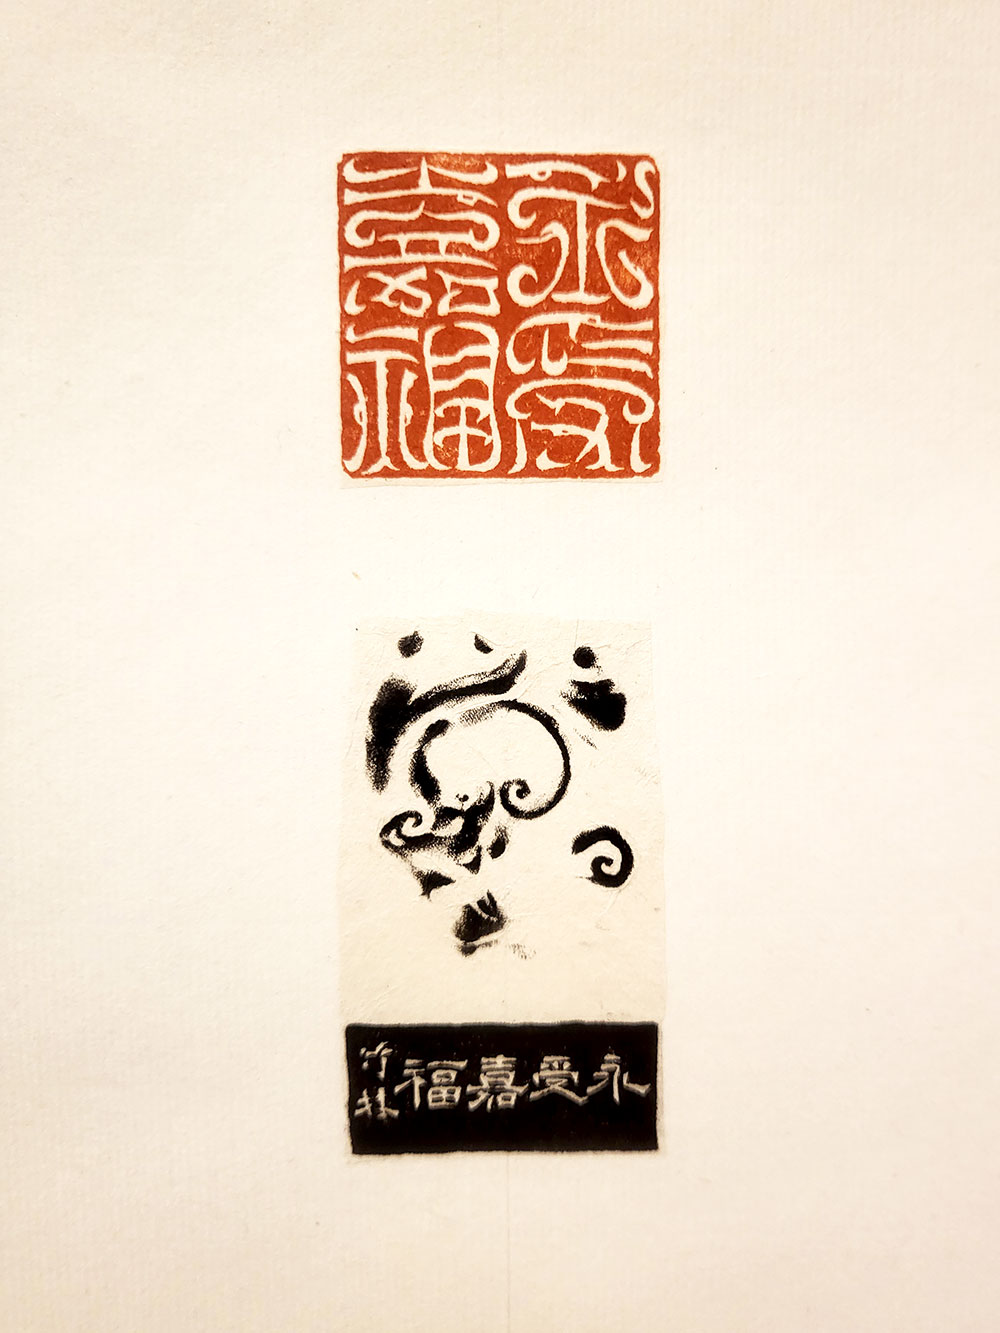 永受
嘉福
永受嘉福
竹林